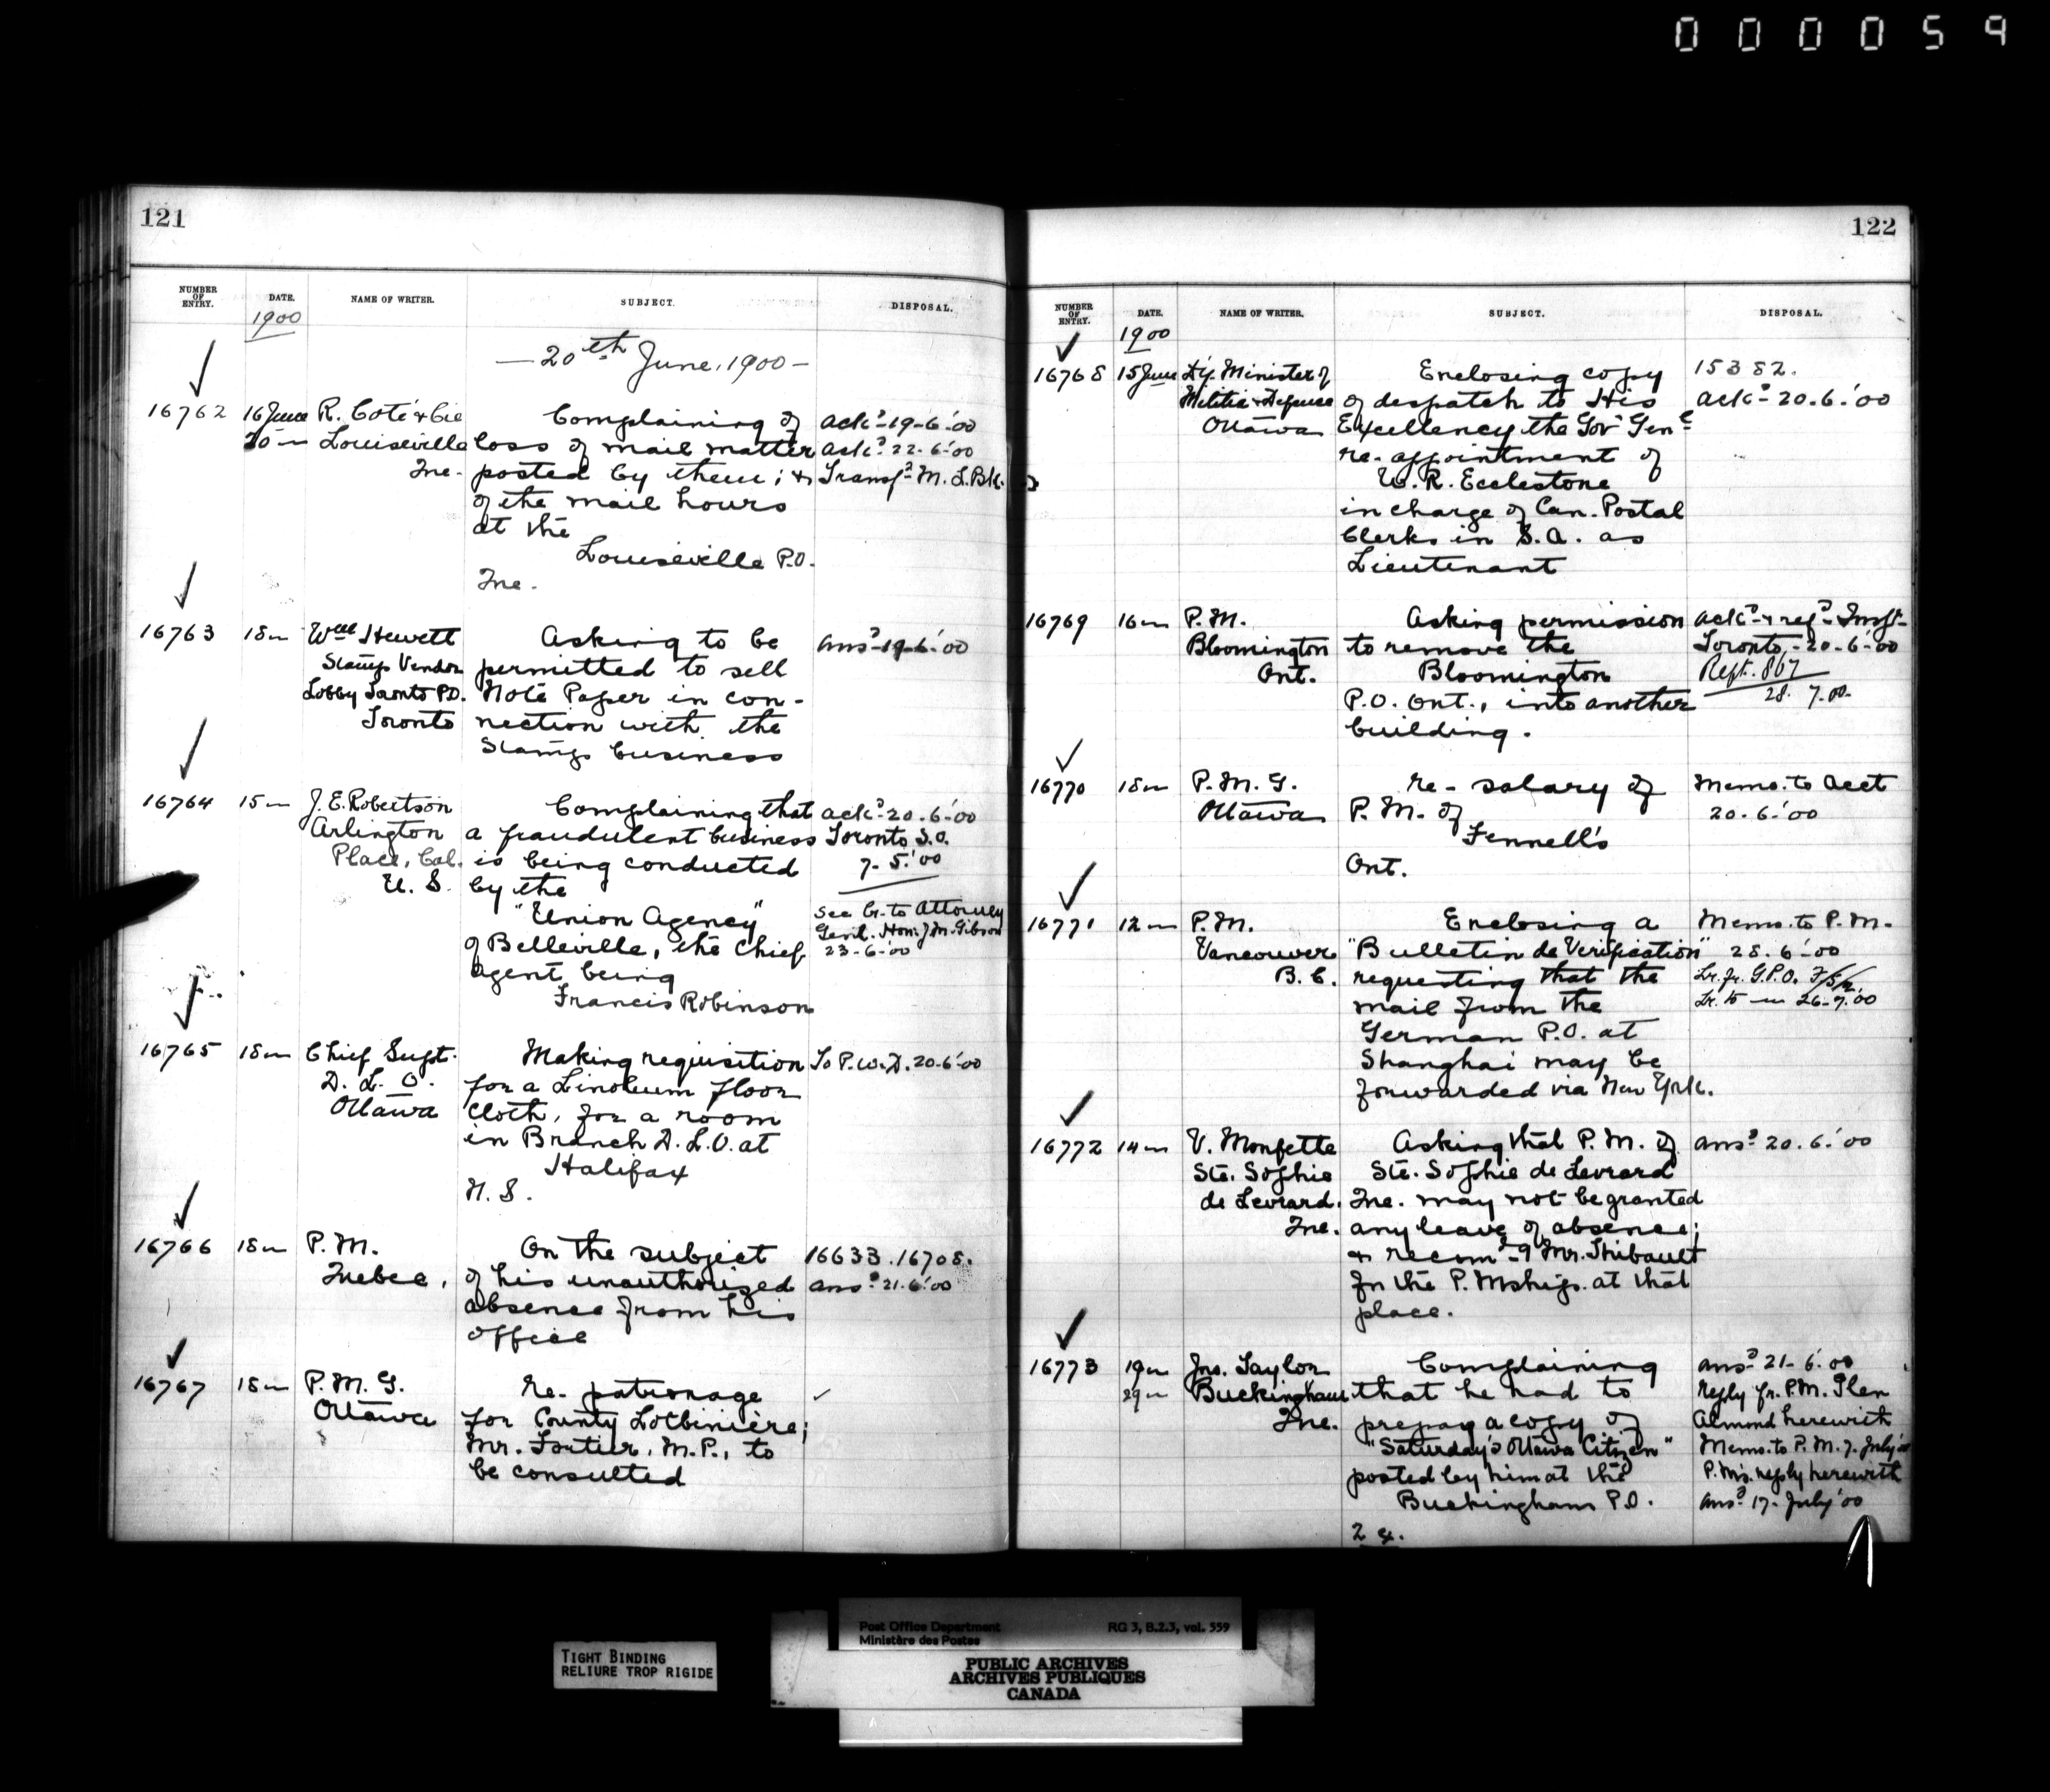 000059
121
NUMBER OF ENTRY.
DATE.
NAME OF WRITER.
SUBJECT.
DISPOSAL.
1900
— 20th June, 1900 —
16762
16 June
20 "
R. Coté & Cie
Louiseville
Que.
Complaining of
loss of mail matter
posted by them; &
of the mail hours
at the
Louiseville P.O.
Que.
ackd 19-6-'00
ackd 22-6-'00
Transfd M. L. Bk.
16763
18 "
Wm Hewett
Stamp Vendor
Lobby Toronto P.O.
Toronto
Asking to be
permitted to sell
Note Paper in con-
nection with the
Stamp business
ansd 19-6-'00
16764
15 "
J. E. Robertson
Arlington
Place, Cal.
U. S.
Complaining that
a fraudulent business
is being conducted
by the
"Union Agency"
of Belleville, the Chief
agent being
Francis Robinson
ackd 20.6-'00
Toronto S.O.
7-5-'00
See Lr. to Attorney
Genl. Hon. J. M. Gibson
23-6-'00
16765
18 "
Chief Supt.
D. L. O.
Ottawa
Making requisition
for a Linoleum floor
cloth, for a room
in Branch D.L.O. at
Halifax
N. S.
To P.W.D. 20-6-'00
16766
18 "
P. M.
Quebec,
On the subject
of his unauthorized
absence from his
office
16633.16708.
ansd 21.6-'00
16767
18 "
P. M. G.
Ottawa
re- patronage
for County Lotbinière;
Mr. Fortier, M.P., to
be consulted
122
NUMBER OF ENTRY.
DATE.
NAME OF WRITER.
SUBJECT.
DISPOSAL.
1900
16768
15 June
Dy. Minister of
Militia & Defence
Ottawa
Enclosing copy
of despatch to His
Excellency the Gov Genl
re- appointment of
W. R. Ecclestone
in charge of Can. Postal
Clerks in S.A. as
Lieutenant
15382.
ackd 20.6-'00
16769
16 "
P. M.
Bloomington
Ont.
Asking permission
to remove the
Bloomington
P.O. Ont., into another
building.
ackd & refd Inspr
Toronto, -20-6-'00
Rept. 867
28. 7.00.
16770
18 "
P. M. G.
Ottawa
re- salary of
P. M. of
Fennell's
Ont.
Memo. to Acct
20.6-'00
16771
12 "
P. M.
Vancouver
B. C.
Enclosing a
"Bulletin de Verification"
requesting that the
mail from the
German P.O. at
Shanghai may be
forwarded via New York.
Memo. to P. M.
28.6-'00
Lr. fr. G.P.O.
Lr. to " 26-7-'00
16772
14 "
V. Monfette
Ste. Sophie
de Levrard.
Que.
Asking that P. M. of
Ste. Sophie de Levrard
Que. may not be granted
any leave of absence;
& recomdg Mr. Thibault
for the P. Mship. at that
place.
ansd 20.6-'00
16773
19 "
29 "
Jno. Taylor
Buckingham
Que.
Complaining
that he had to
prepay a copy of
"Saturday's Ottawa Citizen"
posted by him at the
Buckingham P.O.
2 4.
ansd 21-6-00
reply fr. P.M. Glen
Almond herewith
Memo. to P. M. 7. July '00
P.M's. reply herewith
ansd 17- July '00
TIGHT BINDING
RELIURE TROP RIGIDE
Post Office Department
Ministère des Postes
RG 3, B.2.3, vol. 559
PUBLIC ARCHIVES
ARCHIVES PUBLIQUES
CANADA